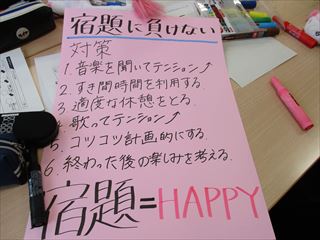 宿題に負けない
対策
1.音楽を聞いてテンション↑
2.すき間時間を利用する.
3.適度な休憩をとる.
4.歌ってテンション↑
5.コツコツ計画的にする.
6.終わった後の楽しみを考える.
宿題=HAPPY